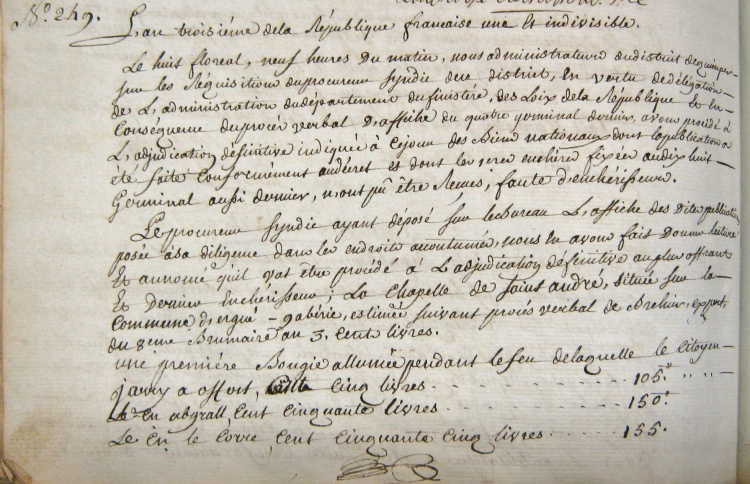 N.º 249.
L'an troisiéme dela République francaise une Et indivisible.
Le huit floreal, neuf heures Du matin, nous administrateurs dudistrict dequimper-
sur les Réquisitions duprocureur syndic dudit district, En vertu dedélégation-
de L'administration dudépartement dufinistère, des Loix dela République Et En
Conséquence duprocès verbal D'affiche du quatre germinal dernier, avons procédé à
L'adjudication définitive indiquée à cejour des Biens nationaux dont la publication a
été faite Conformement audécret et dont les 1eres enchères fixées audix huit-
Germinal aussi dernier, n'ont pu être Reçues, faute D'enchérisseurs.
Le procureur syndic ayant déposé sur leBureau L'affiche des Dites publications
posée àsa diligence dans les endroits accoutumés, nous En avons fait Donner lecture
Et annoncé qu'il vat être procédé à L'adjudication définitive au plus offrant
Et Dernier Enchérisseur; La Chapelle de Saint andré, située sur la-
Commune d'ergué-gabérie, estimée suivant procès verbal de Brelivin, expert,
du 8eme Brumaire an 3. Cents livres.
une premiére Bougie allumée pendant le feu delaquelle le Citoyen-
jarry a offert, Cent Cinq livres. - - - - - 105.#
Le en abgrall, Cent Cinquante livres - - - - - 150.#
Le Cn le Corre, Cent Cinquante Cinq livres - - - - 155.